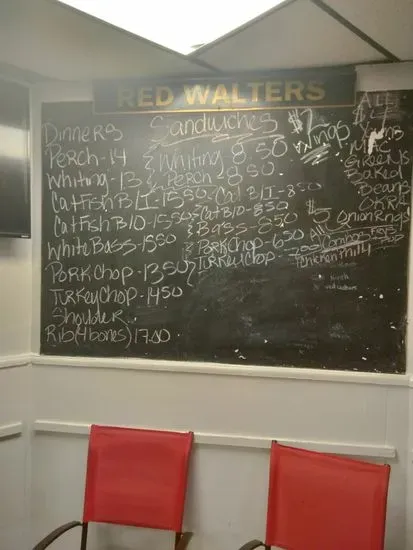 RED WALTERS
Dinners
Perch-14
Whiting-13
CatFish B/I-1550
CatFish B/O-1550
White Bass-1550
PorkChop-1350
TurkeyChop-1450
Shoulder
Rib(4bones)1700
Sandwiches
Whiting 8.50
Perch-850
Cat B/I-850
Cat B/O-850
Bass-850
PorkChop-650
TurkeyChop-
$7
Wings
$5
ALL
Chicken Philly
ALL
$4
MAC
Greens
Baked
Beans
OKRA
Onion Rngs